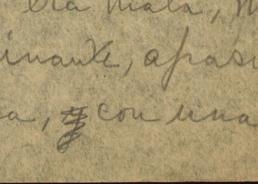 era mala, m
inante, apasi
a, y con una